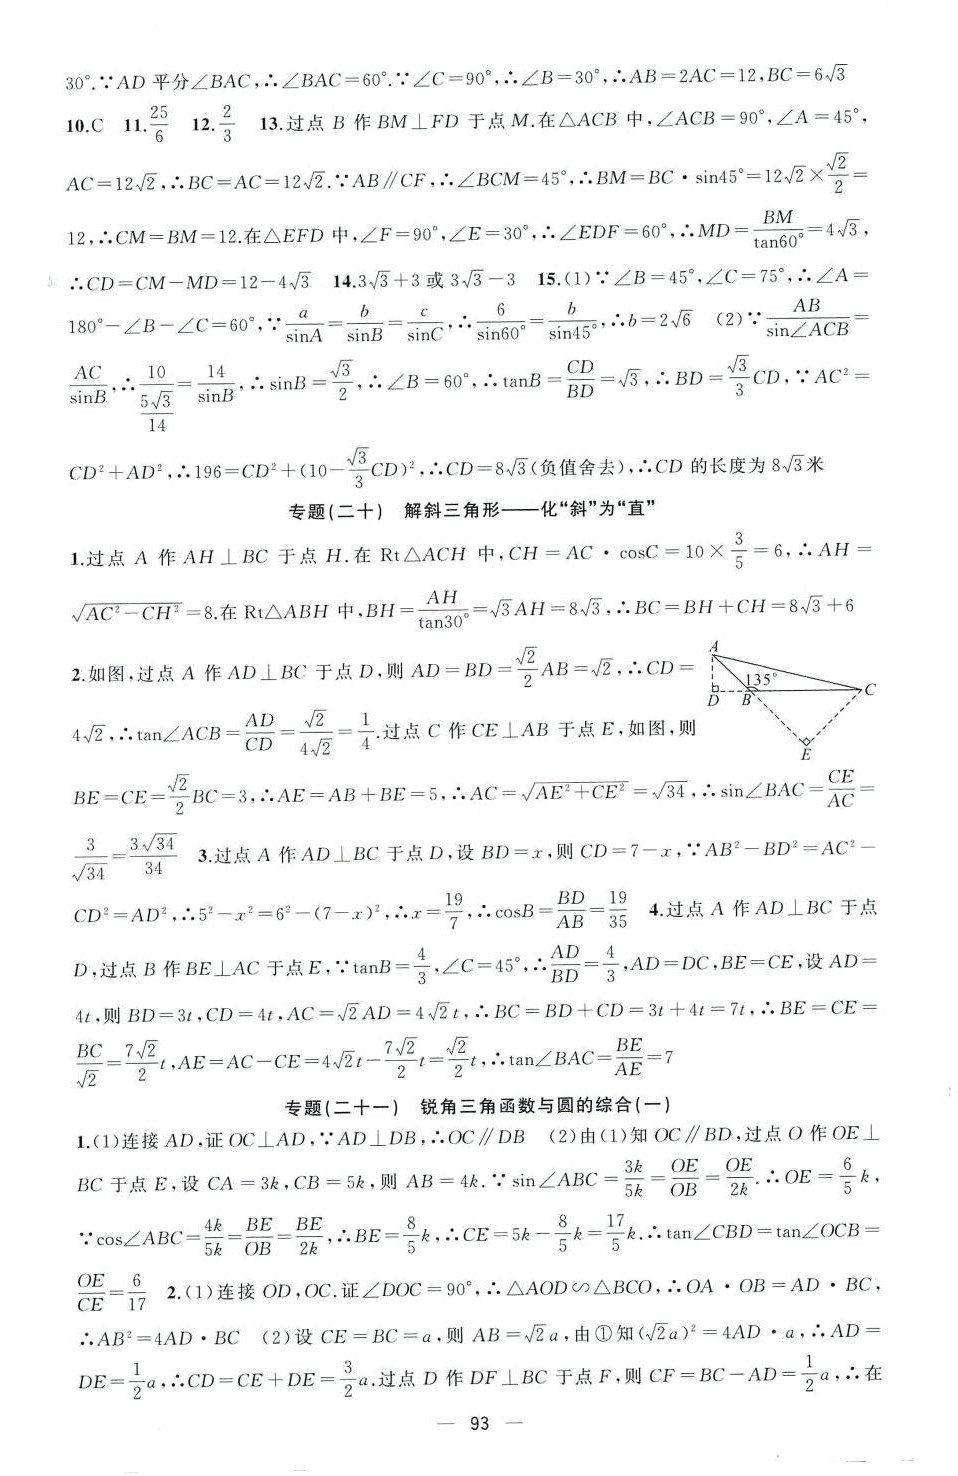 30°.∵AD 平分∠BAC,∴∠BAC=60°.∵∠C=90°,∴∠B=30°,∴AB=2AC=12,BC=6√3
10.C 11.25/6 12.2/3 13.过点 B 作 BM⊥FD 于点 M.在△ACB 中,∠ACB=90°,∠A=45°,
AC=12√2,∴BC=AC=12√2.∵AB∥CF,∴∠BCM=45°,∴BM=BC·sin45°=12√2×√2/2=
12,∴CM=BM=12.在△EFD 中,∠F=90°,∠E=30°,∴∠EDF=60°,∴MD=BM/tan60°=4√3,
∴CD=CM−MD=12−4√3 14.3√3+3 或 3√3−3 15.(1)∵∠B=45°,∠C=75°,∴∠A=
180°−∠B−∠C=60°,∵a/sinA=b/sinB=c/sinC,∴6/sin60°=b/sin45°,∴b=2√6 (2)∵AB/sin∠ACB=
AC/sinB,∴10/(5√3/14)=14/sinB,∴sinB=√3/2,∴∠B=60°,∴tanB=CD/BD=√3,∴BD=√3/3CD,∵AC²=
CD²+AD²,∴196=CD²+(10−√3/3CD)²,∴CD=8√3(负值舍去),∴CD 的长度为 8√3米
专题(二十) 解斜三角形——化“斜”为“直”
1.过点 A 作 AH⊥BC 于点 H.在 Rt△ACH 中,CH=AC·cosC=10×3/5=6,∴AH=
√(AC²−CH²)=8.在 Rt△ABH 中,BH=AH/tan30°=√3AH=8√3,∴BC=BH+CH=8√3+6
2.如图,过点 A 作 AD⊥BC 于点 D,则 AD=BD=√2/2AB=√2,∴CD=
4√2,∴tan∠ACB=AD/CD=√2/4√2=1/4.过点 C 作 CE⊥AB 于点 E,如图,则
A
135°
D B C
E
BE=CE=√2/2BC=3,∴AE=AB+BE=5,∴AC=√(AE²+CE²)=√34,∴sin∠BAC=CE/AC=
3/√34=3√34/34 3.过点 A 作 AD⊥BC 于点 D,设 BD=x,则 CD=7−x,∵AB²−BD²=AC²−
CD²=AD²,∴5²−x²=6²−(7−x)²,∴x=19/7,∴cosB=BD/AB=19/35 4.过点 A 作 AD⊥BC 于点
D,过点 B 作 BE⊥AC 于点 E,∵tanB=4/3,∠C=45°,∴AD/BD=4/3,AD=DC,BE=CE,设 AD=
4t,则 BD=3t,CD=4t,AC=√2AD=4√2t,∴BC=BD+CD=3t+4t=7t,∴BE=CE=
BC/√2=7√2/2t,AE=AC−CE=4√2t−7√2/2t=√2/2t,∴tan∠BAC=BE/AE=7
专题(二十一) 锐角三角函数与圆的综合(一)
1.(1)连接 AD,证 OC⊥AD,∵AD⊥DB,∴OC∥DB (2)由(1)知 OC∥BD,过点 O 作 OE⊥
BC 于点 E,设 CA=3k,CB=5k,则 AB=4k.∵sin∠ABC=3k/5k=OE/OB=OE/2k.∴OE=6/5k,
∵cos∠ABC=4k/5k=BE/OB=BE/2k,∴BE=8/5k,∴CE=5k−8/5k=17/5k.∴tan∠CBD=tan∠OCB=
OE/CE=6/17 2.(1)连接 OD,OC.证∠DOC=90°,∴△AOD∽△BCO,∴OA·OB=AD·BC,
∴AB²=4AD·BC (2)设 CE=BC=a,则 AB=√2a,由①知(√2a)²=4AD·a,∴AD=
DE=1/2a,∴CD=CE+DE=3/2a.过点 D 作 DF⊥BC 于点 F,则 CF=BC−AD=1/2a,∴在
— 93 —